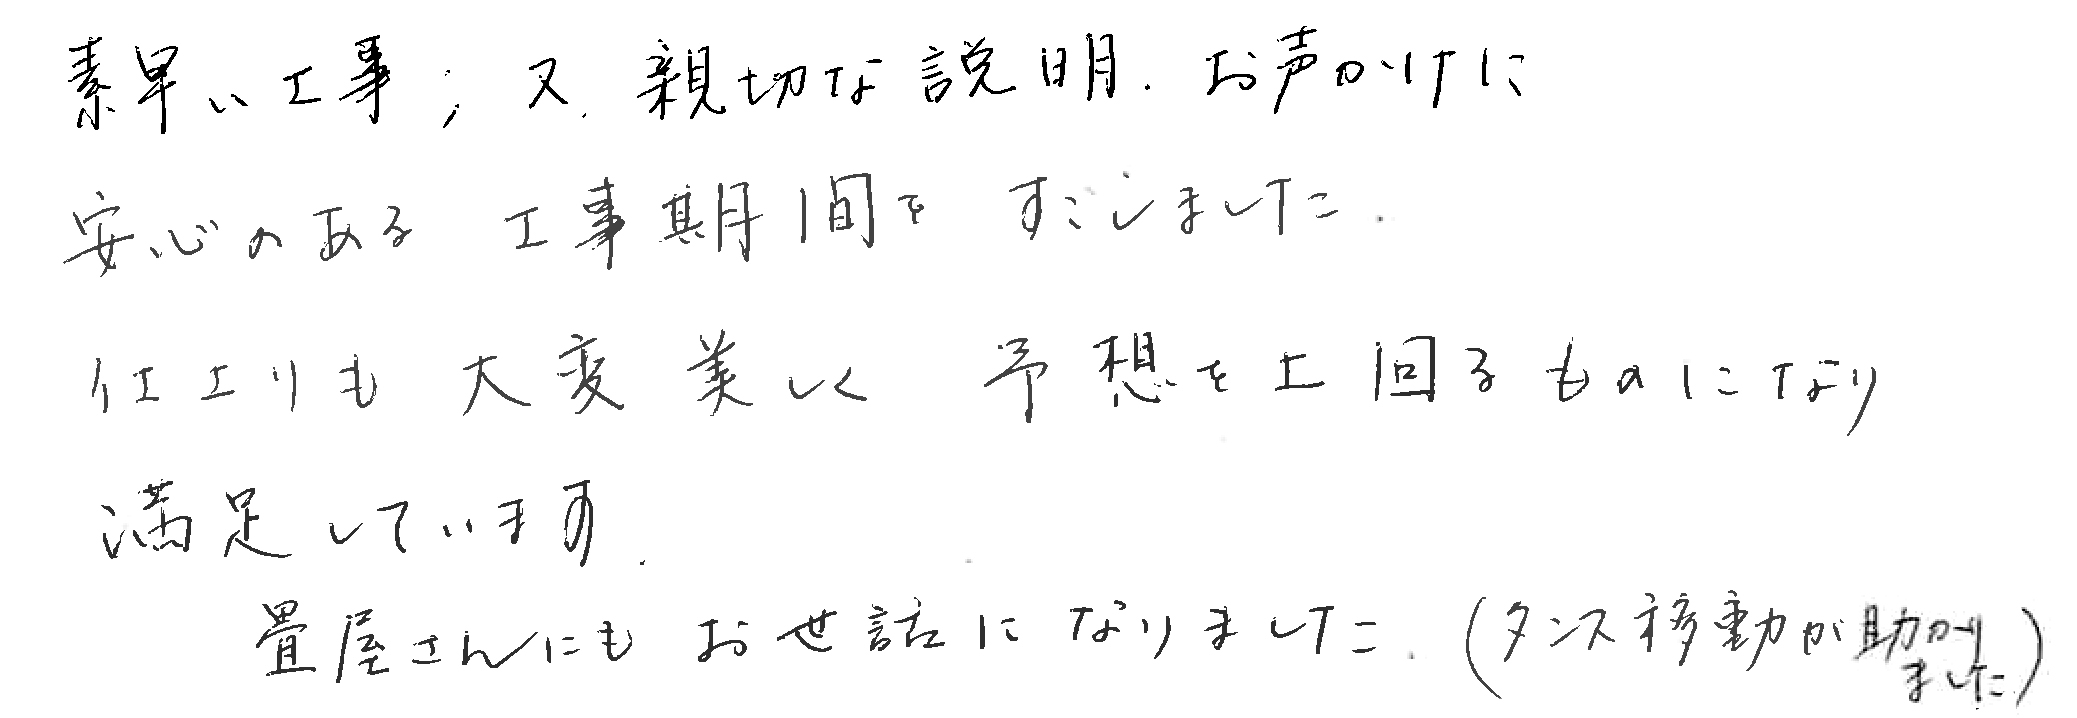 素早い工事、又、親切な説明、お声かけに
安心のある 工事期間を すごしました。
仕上りも 大変 美しく 予想を上回るものになり
満足しています。
畳屋さんにも お世話に なりました。(タンス移動が助かり
ました)